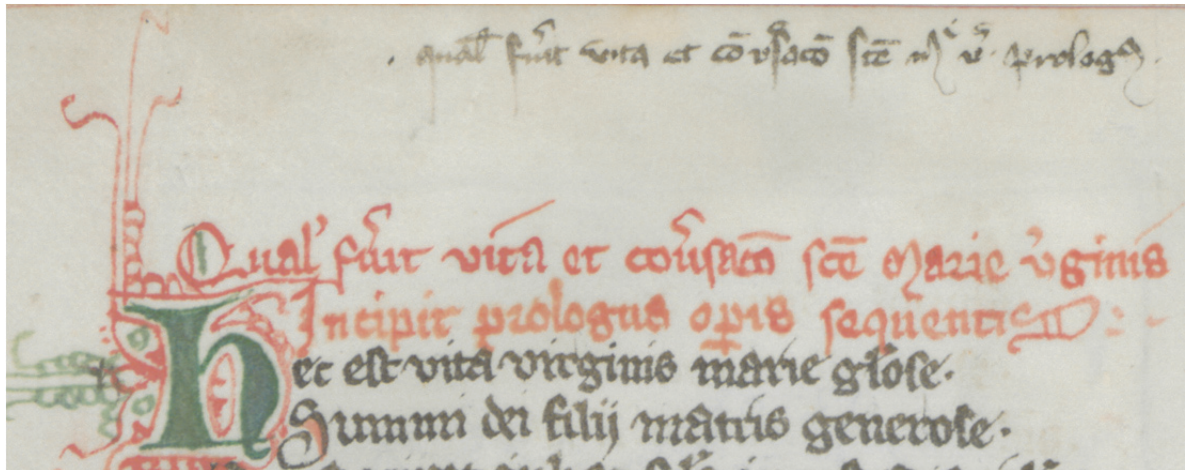 qual' fu'it vita et co͞v'saco͞ sce͞ M' v' prolog9
Qual' fu'it vita et co͞u'saco͞ sce͞ Marie v'ginis
Incipit prologus op̱is sequentis
Hec est vita virginis marie gl'ose.
Summi dei filij matris generose.